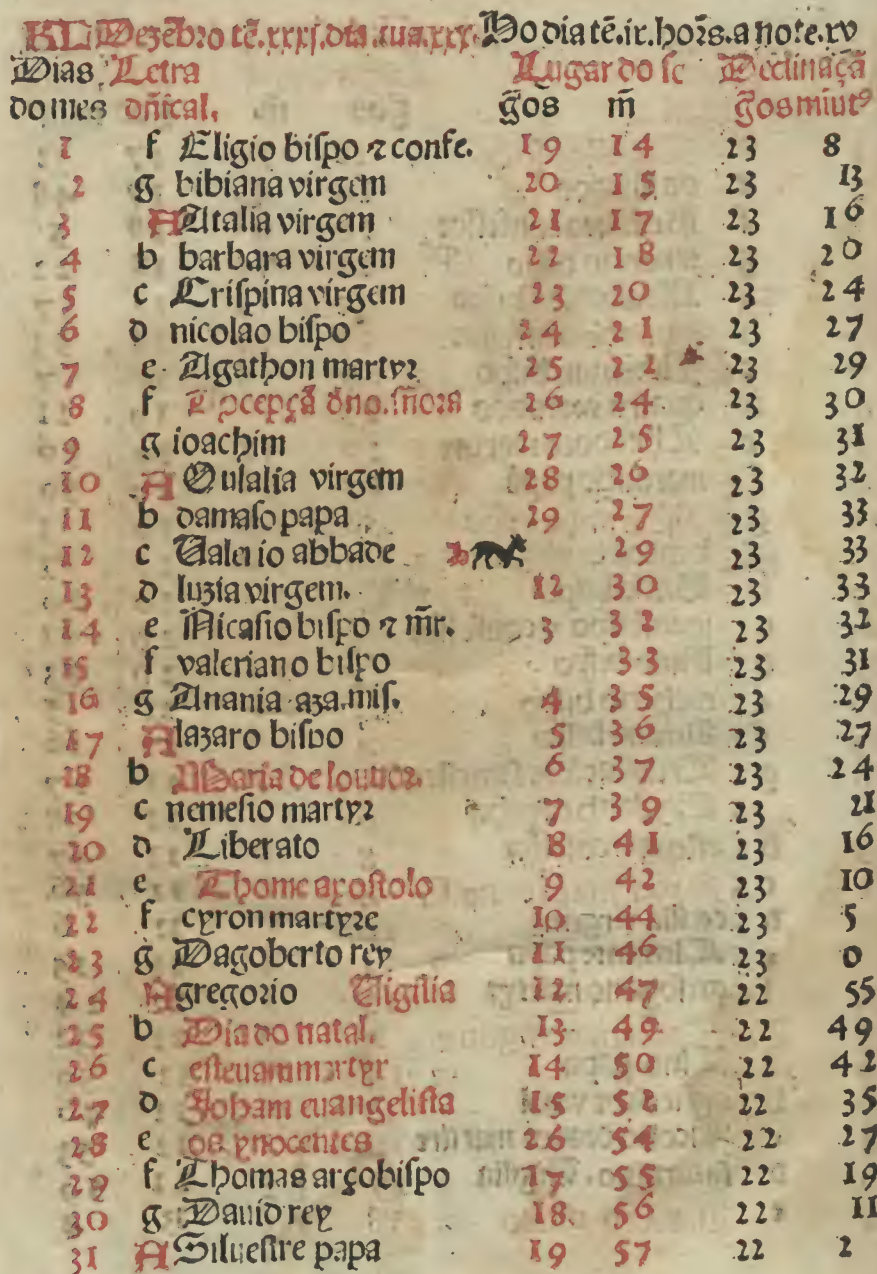 KL Dezẽbro tẽ.xxxj.dia .lua.xxx. Ho dia tẽ.ix.hors.a note.xv
Dias Letra Lugar do so Declinaçã
do mes dñical. g̃os m̃ g̃os miutꝰ
1 f Eligio bispo ⁊ confe. 19 14 23 8
2 g bibiana virgem 20 15 23 13
3 A Atalia virgem 21 17 23 16
4 b barbara virgem 22 18 23 20
5 c Crispina virgem 23 20 23 24
6 d nicolao bispo 24 21 23 27
7 e Agathon martyr 25 22 23 29
8 f cepçã d̃ no.sñora 26 24 23 30
9 g ioachim 27 25 23 31
10 A Oulalia virgem 28 26 23 32
11 b damaso papa 29 27 23 33
12 c Valerio abbade 29 23 33
13 d luzia virgem. 12 30 23 33
14 e Nicasio bispo ⁊ m̃r. 3 32 23 32
15 f valeriano bispo 33 23 31
16 g Anania aza.mis. 4 35 23 29
17 A lazaro bispo 5 36 23 27
18 b Maria de louuor. 6 37 23 24
19 c nemesio martyr 7 39 23 21
20 d Liberato 8 41 23 16
21 e Thome apostolo 9 42 23 10
22 f cyron martyre 10 44 23 5
23 g Dagoberto rey 11 46 23 0
24 A gregorio Vigilia 12 47 22 55
25 b Dia do natal. 13 49 22 49
26 c esteuam martyr 14 50 22 42
27 d Joham euangelista 15 52 22 35
28 e os ynocentes 26 54 22 27
29 f Thomas arçobispo 17 55 22 19
30 g Dauid rey 18 56 22 11
31 A Siluestre papa 19 57 22 2